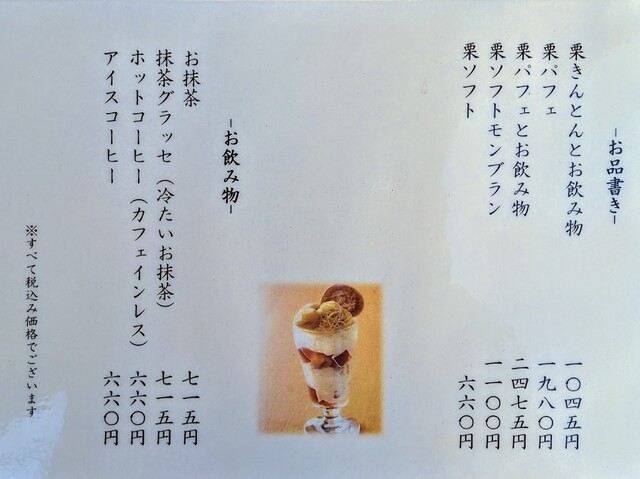 -お品書き-
栗きんとんとお飲み物 一〇四五円
栗パフェ 一九八〇円
栗パフェとお飲み物 二四七五円
栗ソフトモンブラン 一一〇〇円
栗ソフト 六六〇円
-お飲み物-
お抹茶 七一五円
抹茶グラッセ（冷たいお抹茶） 七一五円
ホットコーヒー（カフェインレス） 六六〇円
アイスコーヒー 六六〇円
※すべて税込み価格でございます